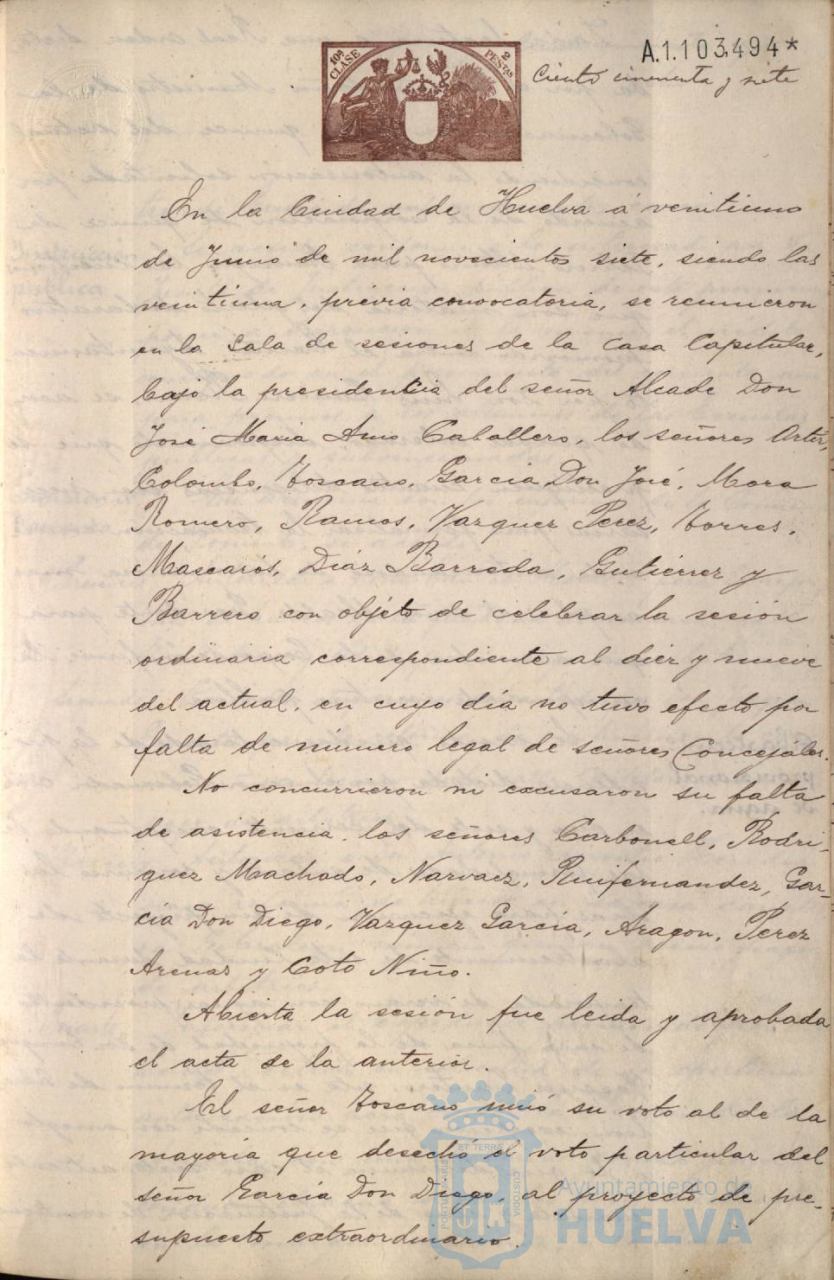 10ª CLASE
2 PESETAS
A.1.103,494*
Ciento cincuenta y siete
En la Ciudad de Huelva á veintiuno
de Junio de mil novecientos siete, siendo las
veintiuna, prévia convocatoria, se reunieron
en la Sala de sesiones de la Casa Capitular,
bajo la presidencia del señor Alcade Don
José Maria Amo Caballero, los señores
Colombo, Toscano, Garcia Don José, Mora
Romero, Ramos, Vazquez Perez, Torres,
Mascarós, Diáz Barreda, Gutiérrez y
Barrero con objeto de celebrar la sesión
ordinaria correspondiente al diez y nueve
del actual, en cuyo día no tuvo efecto por
falta de número legal de señores Concejales.
No concurrieron ni excusaron su falta
de asistencia, los señores Carbonell, Rodri-
guez Machado, Narvaez, Ruifernandez, Gar-
cia Don Diego, Vazquez García, Aragon, Perez
Arenas y Coto Niño.
Abierta la sesión fue leida y aprobada
el acta de la anterior.
El señor Toscano unió su voto al de la
mayoría que desechó el voto particular del
señor Garcia Don Diego, al proyecto de pre-
supuesto extraordinario.
Ayuntamiento de
HUELVA